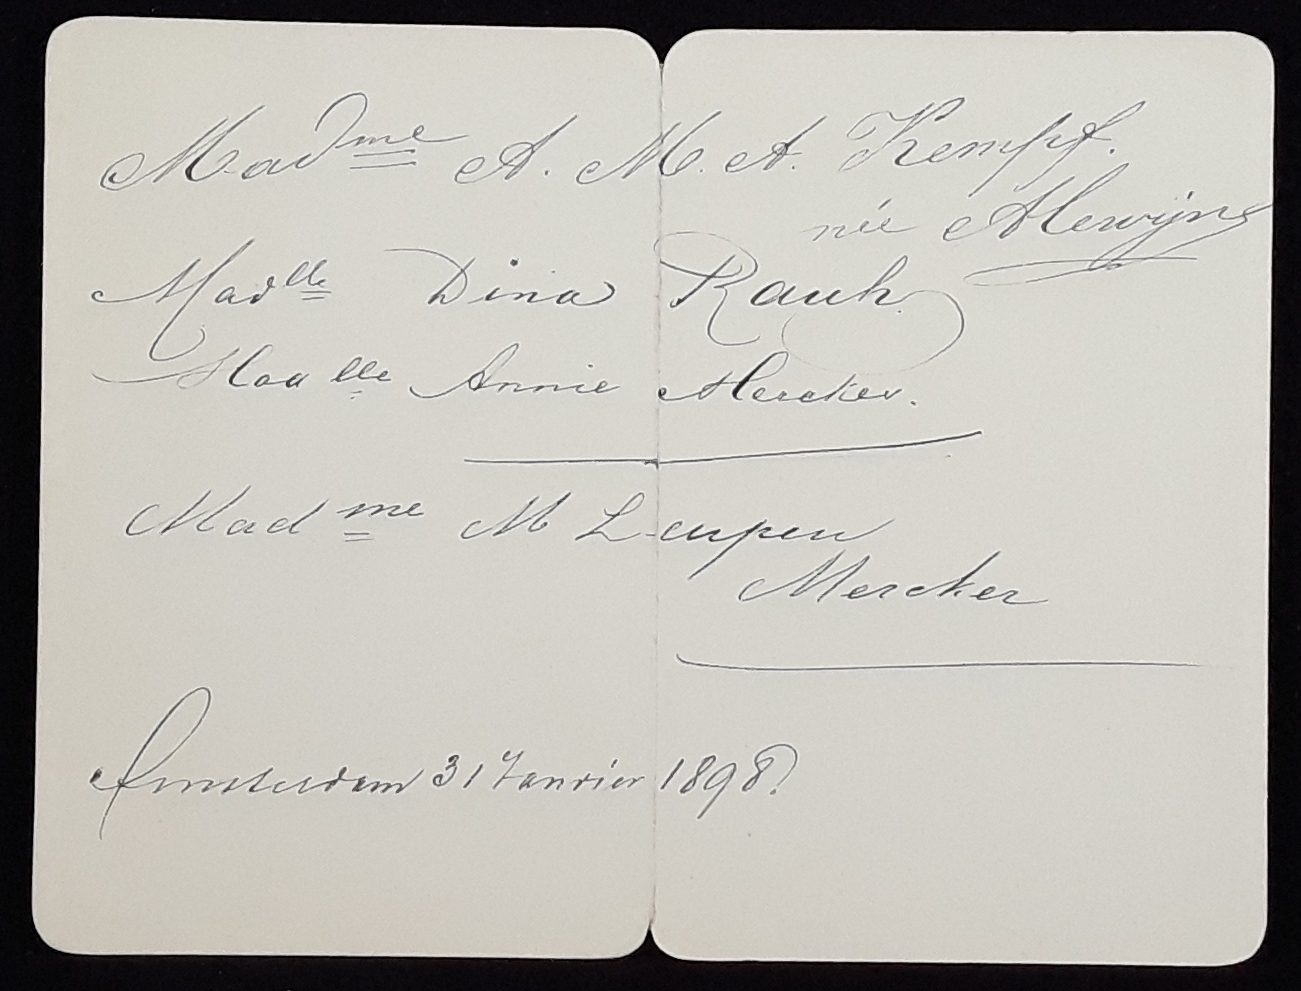 Madme A. M. A. Kempf.
née Alewijns
Madlle Dina Rauh
Madlle Annie Mercker.
Madme M Leupen
Mercker
Amsterdam 31 Janvier 1898.